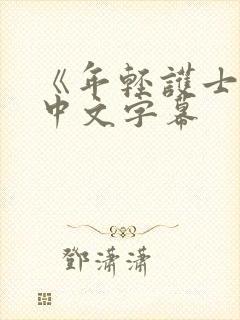 《年轻護士
中文字幕
鄧瀟瀟